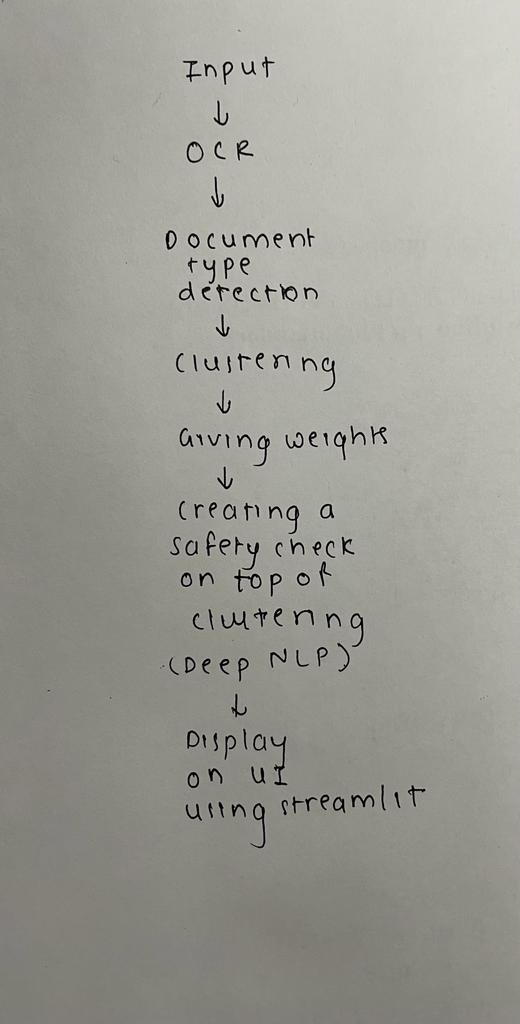 Input
↓
OCR
↓
Document
type
detection
↓
Clustering
↓
Giving weights
↓
Creating a
safety check
on top of
clustering
(Deep NLP)
↓
Display
on UI
using streamlit